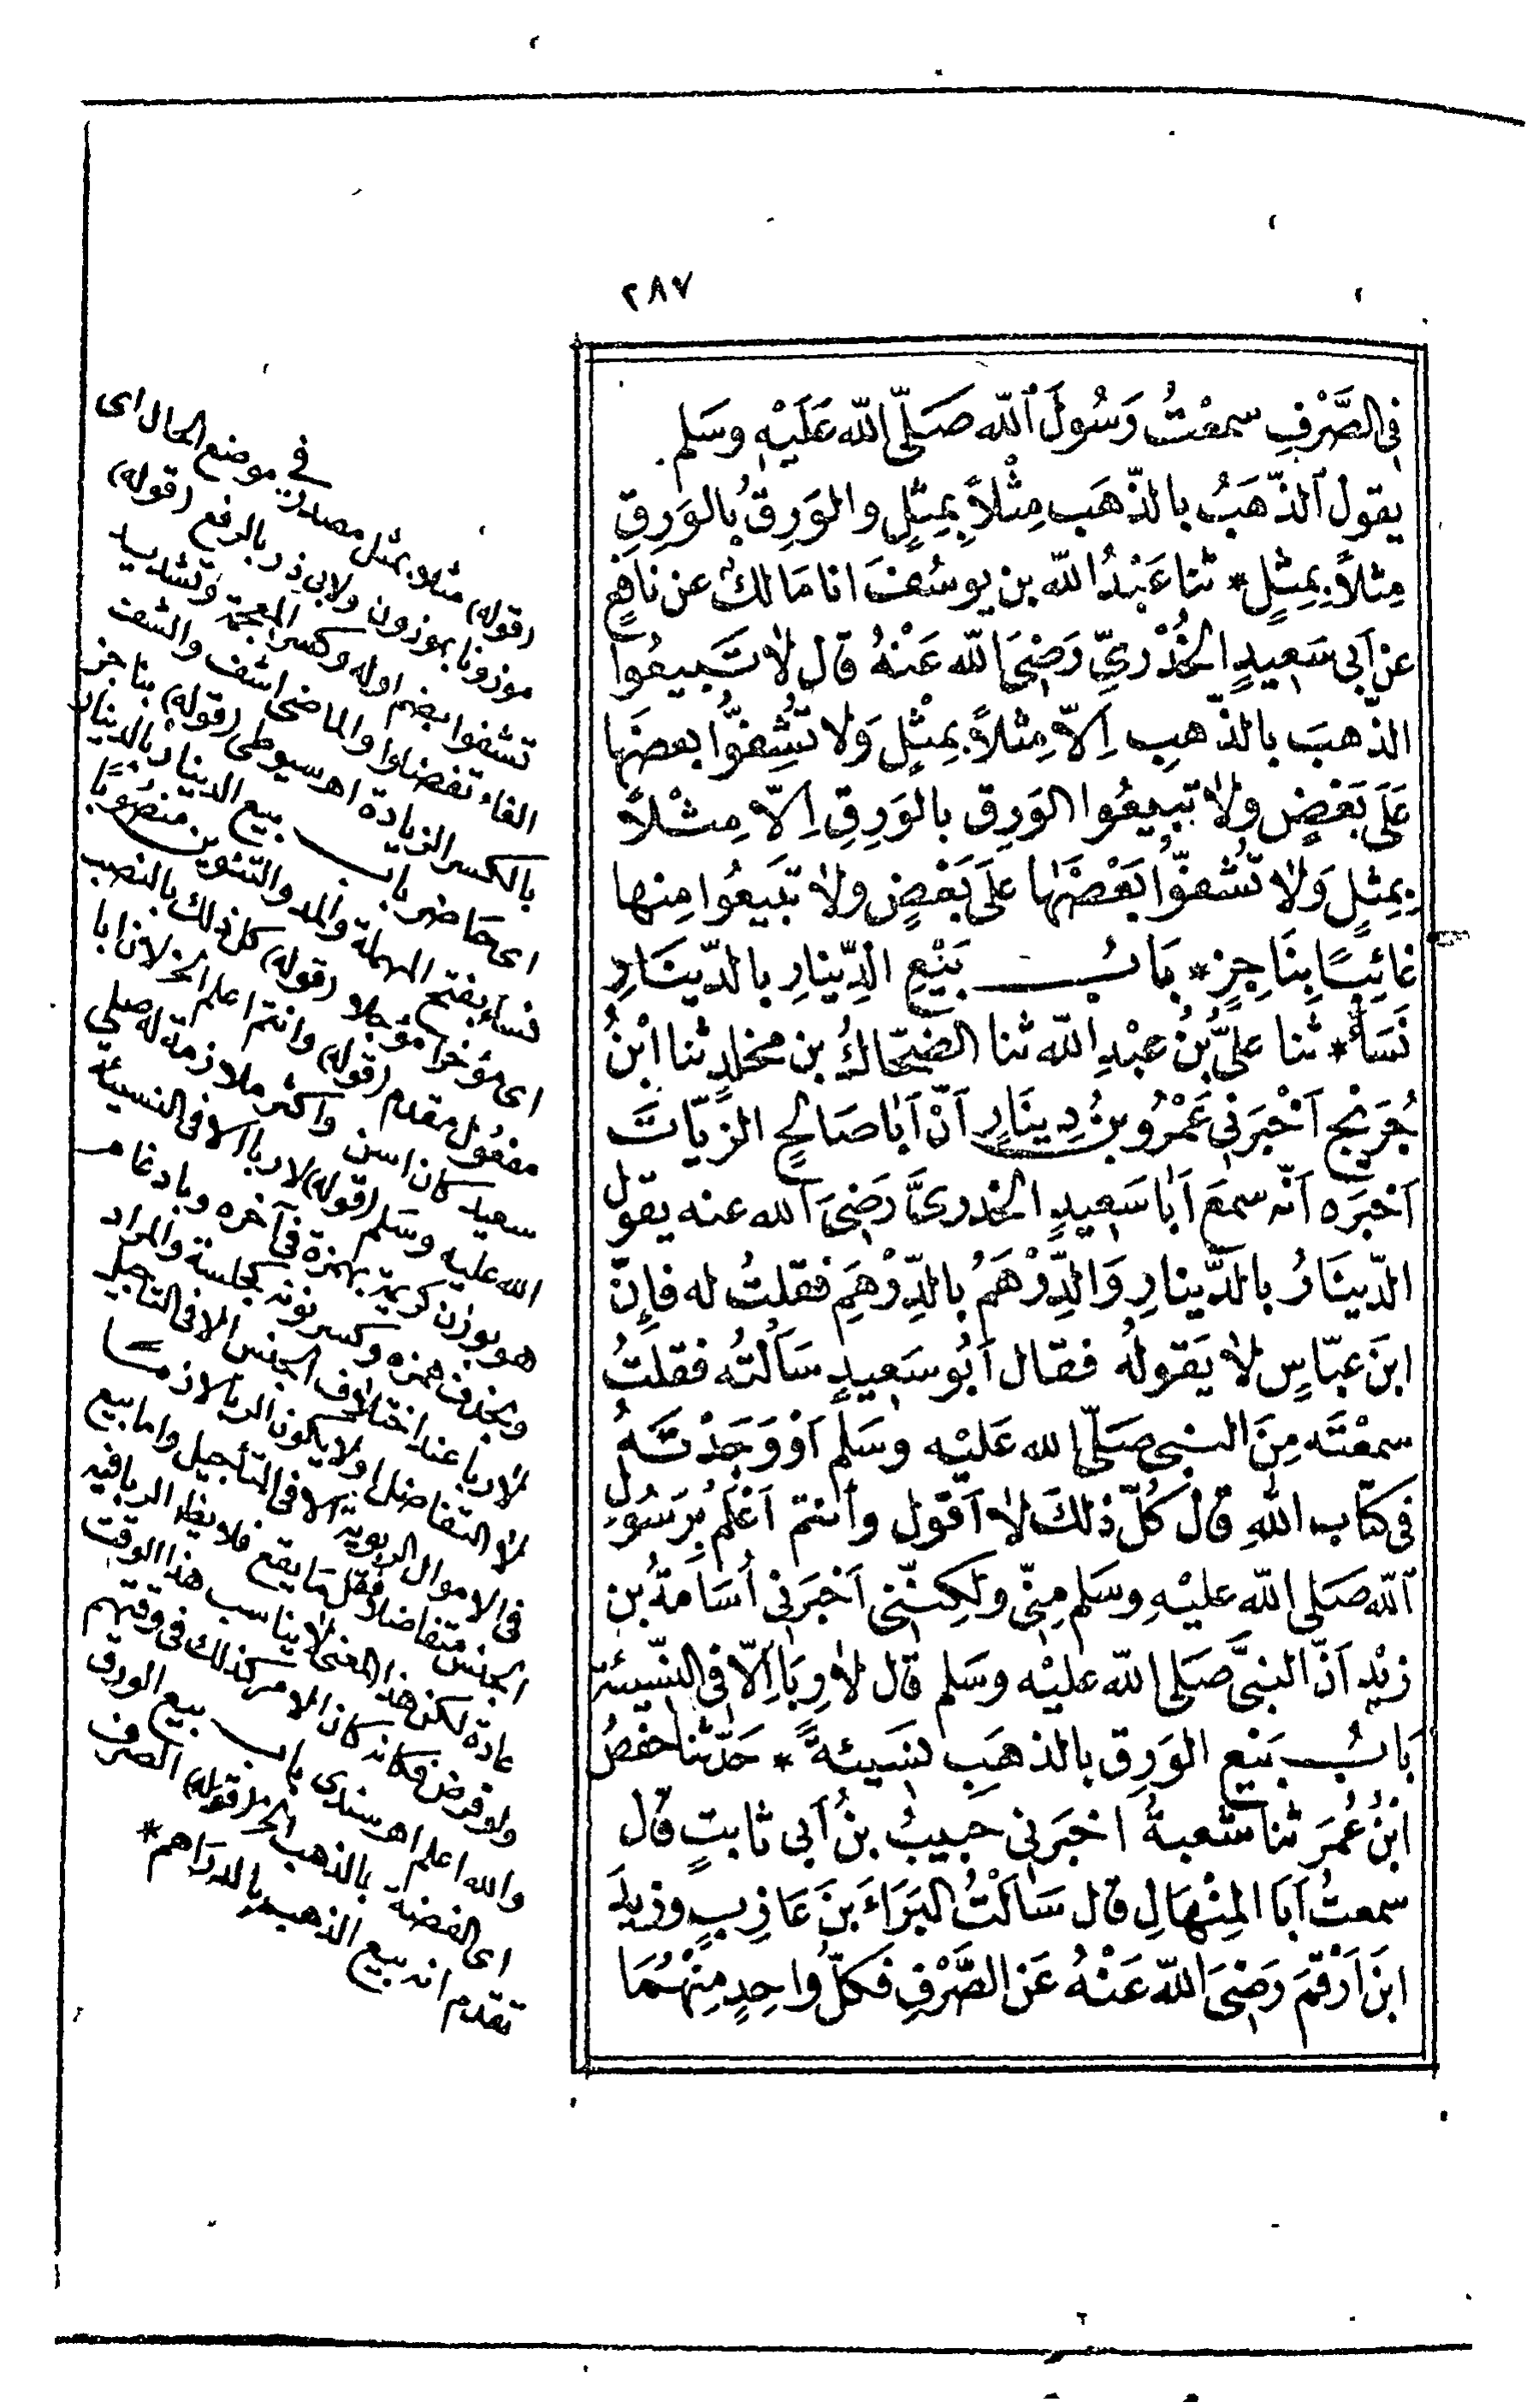 ٢٨٧
فِي الصَّرْفِ سمعْتُ رَسُولَ ٱللّه صَلَّى اللّه عَلَيْهِ وسَلم
يقول ٱلذّهَبُ بالذّهَب مِثْلاً بِمِثلٍ والوَرِقُ بالوَرِقِ
مِثلاً بِمِثلٍ * ثنا عَبْدُ اللّه بن يوسُفَ انا مَالكٌ عن نَافعٍ
عن اَبى سَعِيدٍ الخُدْرِيِّ رَضِىَ اللّه عَنْهُ قال لا تَبيعُوا
الذّهبَ بالذّهبِ اِلاّ مِثلاً بِمِثْلٍ وَلا تُشِفّوا بعضَهَا
عَلَى بَعْضٍ ولا تبيعُوا الوَرِق بالوَرِقِ اِلاّ مِثْلاً
بِمِثلٍ وَلا تُشفّوُا بَعْضَهَا علَى بَعْضٍ ولا تَبيعُوا منها
غائِبًا بِنَاجِزٍ * بَابُ بَيْعِ الدِّينارِ بالدّينَارِ
نَسَأً * ثنا علىُّ بْنُ عبْدِ اللّه ثنا الضحّاكُ بن مخلدٍ ثنا ابْنُ
جُرَيْجٍ اَخْبَرَنى عَمْرُو بنُ دِينَارٍ اَنّ اَبَا صَالحٍ الزيّاتَ
اَخبَرَه اَنّه سمعَ اَبَا سَعِيدٍ الخدرىَّ رَضِىَ ٱلله عنه يقول
الدّينَارُ بالدّينارِ وَالدِّرْهَمُ بالدِّرْهَمِ فقلتُ له فإِنّ
ابنَ عبّاسٍ لا يَقولهُ فقال اَبُو سَعِيدٍ سَاَلتُه فقلتُ
سمعْتَه مِنَ النبى صَلّى الله عَليْه وسَلم اَوْ وَجَدْتَهُ
فى كتَاب اللّهِ قال كُلّ ذلكَ لا اَقول وأنتم اَعْلَم برَسُولِ
ٱللّه صَلى اللّه عليْهِ وسَلم مِنّى ولكِنّنى اَخبَرَنى اُسَامةُ بن
زيْدٍ اَنّ النبىَّ صَلى اللّه عليْه وسَلم قال لا رِبَا اِلاّ فى النّسِيئة
بَابُ بَيْع الوَرِق بالذهَبِ نسَيئةً * حَدّثنا حفصُ
ابْنُ عُمَرَ ثنا شعبةُ اخبَرَنى حبيبُ بنُ اَبى ثابتٍ قال
سمعتُ اَبَا المِنْهَالِ قال سَاَلْتُ البَرَاءَ بنَ عَازِبٍ وزيدَ
ابنَ اَرْقمَ رَضِىَ اللّه عَنْهُ عَن الصَّرْفِ فكلّ واحِدٍ مِنْهُمَا
(قوله) مثلا بمثل مصدر فى موضع الحال اى
موزونا بموزون ولابى ذر بالرفع (قوله)
تشفوا بضم اوله وكسر المعجمة وتشديد
الفاء تفضلوا والماضى اشف والشف
بالكسر الزيادة اهـ سيوطى (قوله) بناجز
اى حاضر باب بيع الدينار بالدينار
نساء بفتح المهملة والمد والتنوين منصوبًا
اى مؤخرا مؤجلا (قوله) كل ذلك بالنصب
مفعول مقدم (قوله) وانتم اعلم الخ لان ابا
سعيد كان اسن واكثر ملازمة له صلى
الله عليه وسلم (قوله) لا ربا الا فى النسيئة
هو بوزن كريمة بهمزة فى آخره وبادغام
وبحذف همزه وكسر نونه كجلسة والمراد
لا ربا عند اختلاف الجنس الا فى التاجيل
لا التفاضل اولا يكون الربا لازمًا
فى الاموال الربوية الا فى التأجيل واما بيع
الجنس متفاضلا فقل ما يقع فلا يظهر الربا فيه
عادة لكن هذا المعنى لا يناسب هذا الوقت
ولو فرض فكانه كان الامر كذلك فى وقتهم
والله اعلم اهـ سندى باب بيع الورق
اى الفضة بالذهب الخ (قوله) الصرف
تقدم انه بيع الذهب بالدراهم *